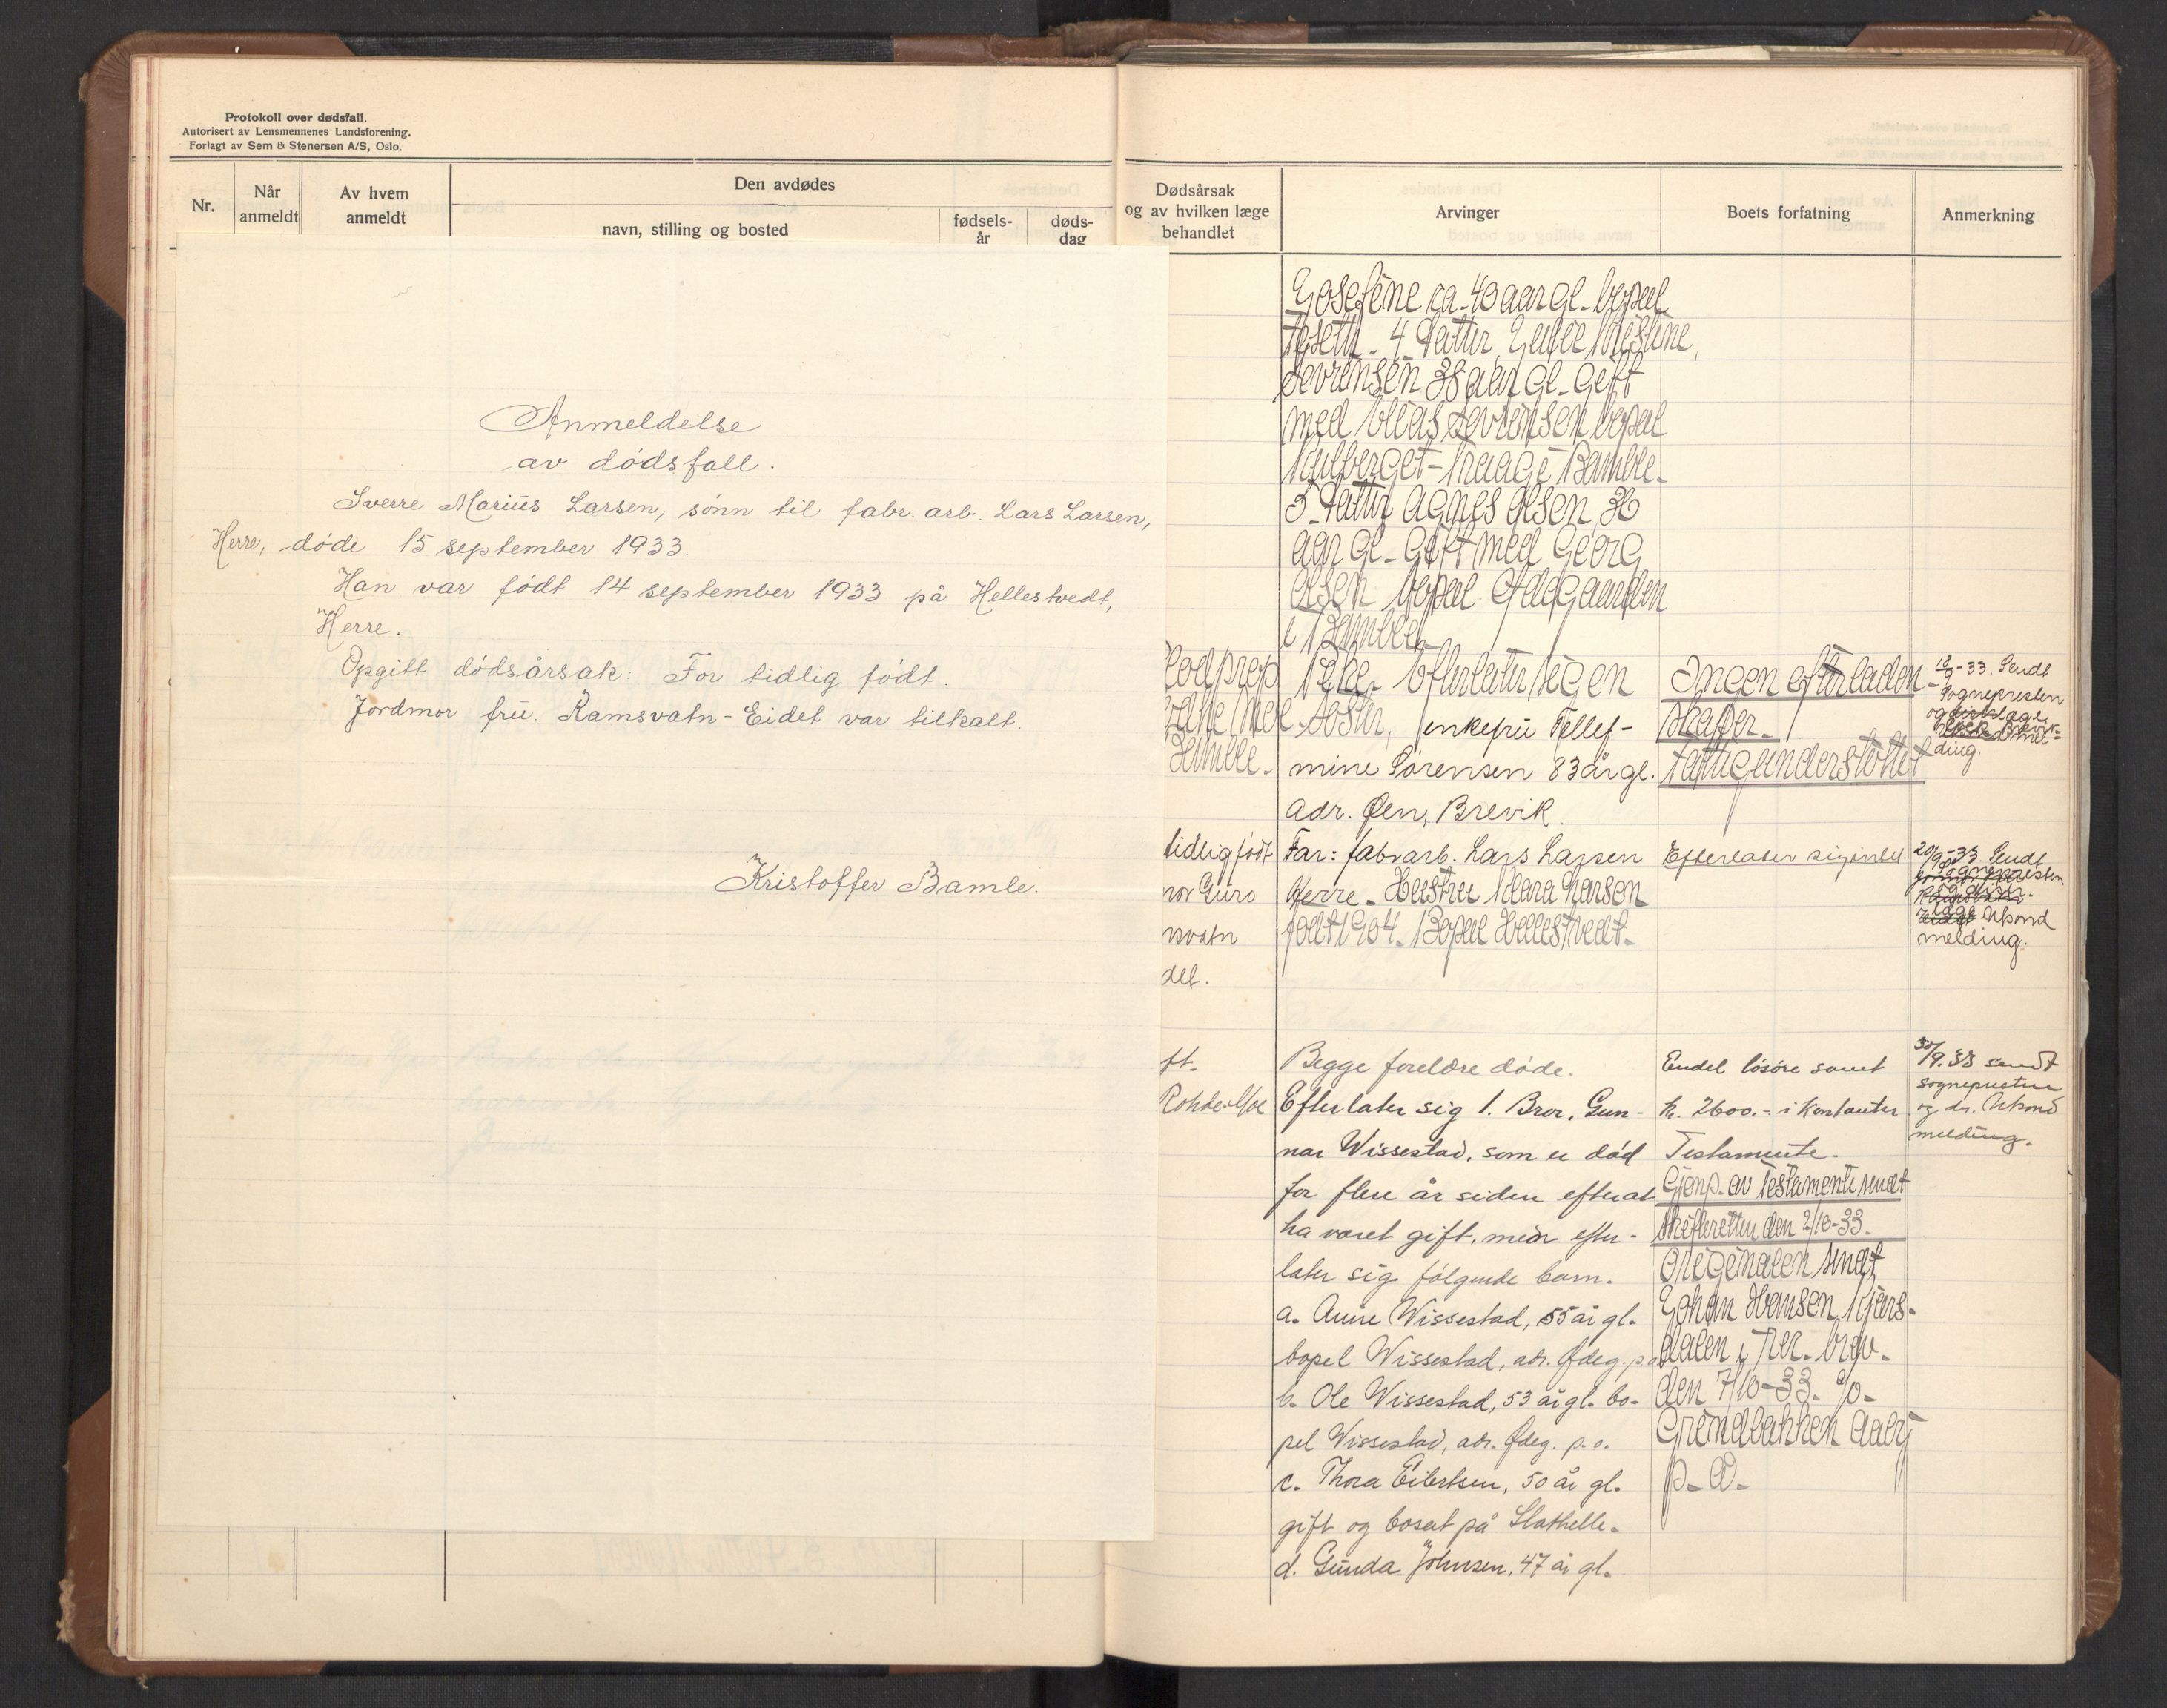 Protokoll over dødsfall.
Autorisert av Lensmennenes Landsforening.
Forlagt av Sem & Stenersen A/S, Oslo.
Nr.
Når anmeldt
Av hvem anmeldt
Den avdødes
navn, stilling og bosted
fødsels-
år
døds-
dag
Anmeldelse
av dødsfall.
Sverre Marius Larsen, sønn til fabr. arb. Lars Larsen,
Herre, døde 15 september 1933.
Han var født 14 september 1933 på Hellestvedt,
Herre.
Opgitt dødsårsak: For tidlig født.
Jordmor fru. Ramsvatn-Eidet var tilkalt.
Kristoffer Bamle.
Dødsårsak
og av hvilken læge
behandlet
tidlig født
mor Guro
svatn
det.
ft.
Arvinger
ca. 40 aar gl. bopæl
4 Datter
Sørensen 38 aar gl. gift
med Elias Sørensen bopæl
i Bamble.
5. Datter Agnes Olsen
aar gl. gift med Georg
Olsen bopæl
i Bamble.
Ikke. Efterlater 1 egen
søster, enkefru Tellef-
mine Sørensen 83 år gl.
adr. Øen, Brevik.
Far: fabrarb. Lars Larsen
Herre. Hustru Klara Larsen
født 1904. Bopæl Hellestvedt.
Begge foreldre døde.
Efterlater sig 1. Bror, Gun-
nar Wissestad, som er død
for flere år siden efterat
ha været gift, men efter-
later sig følgende barn.
a. Anne Wissestad, 55 år gl.
bopel Wissestad, adr. Ødeg. p.o.
b. Ole Wissestad, 53 år gl. bo-
pel Wissestad, adr. Ødeg. p.o.
c. Thora Eilertsen, 50 år gl.
gift og bosat på Stathelle.
d. Gunda Johnsen, 47 år gl.
Boets forfatning
Ingen efterladen-
skaper.
Fattigunderstøttet
Efterlater sig intet
Endel løsøre samt
kr. 2600.- i kontanter
Testamente.
Gjenp. av Testamente sendt
skifteretten den 2/10-33.
Originalen sendt
Johan Hansen
dalen, per. brev.
den 7/10-33. c/o.
Grindbakken
p. o.
Anmerkning
-33. Sendt
Sognepresten
og
ding.
20/9-33. Sendt
Sognepresten
Ukond
melding.
30/9.33 sendt
sognepresten
og dr. Ukond
melding.